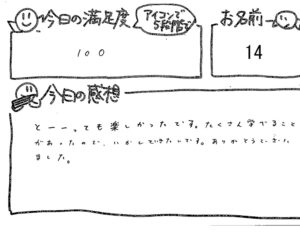 今日の満足度
アイコンで
5段階で
お名前
100
14
今日の感想
とーー。ても楽しかったです。たくさん学べること
があったので、いかしていきたいです。ありがとうございい
ました。